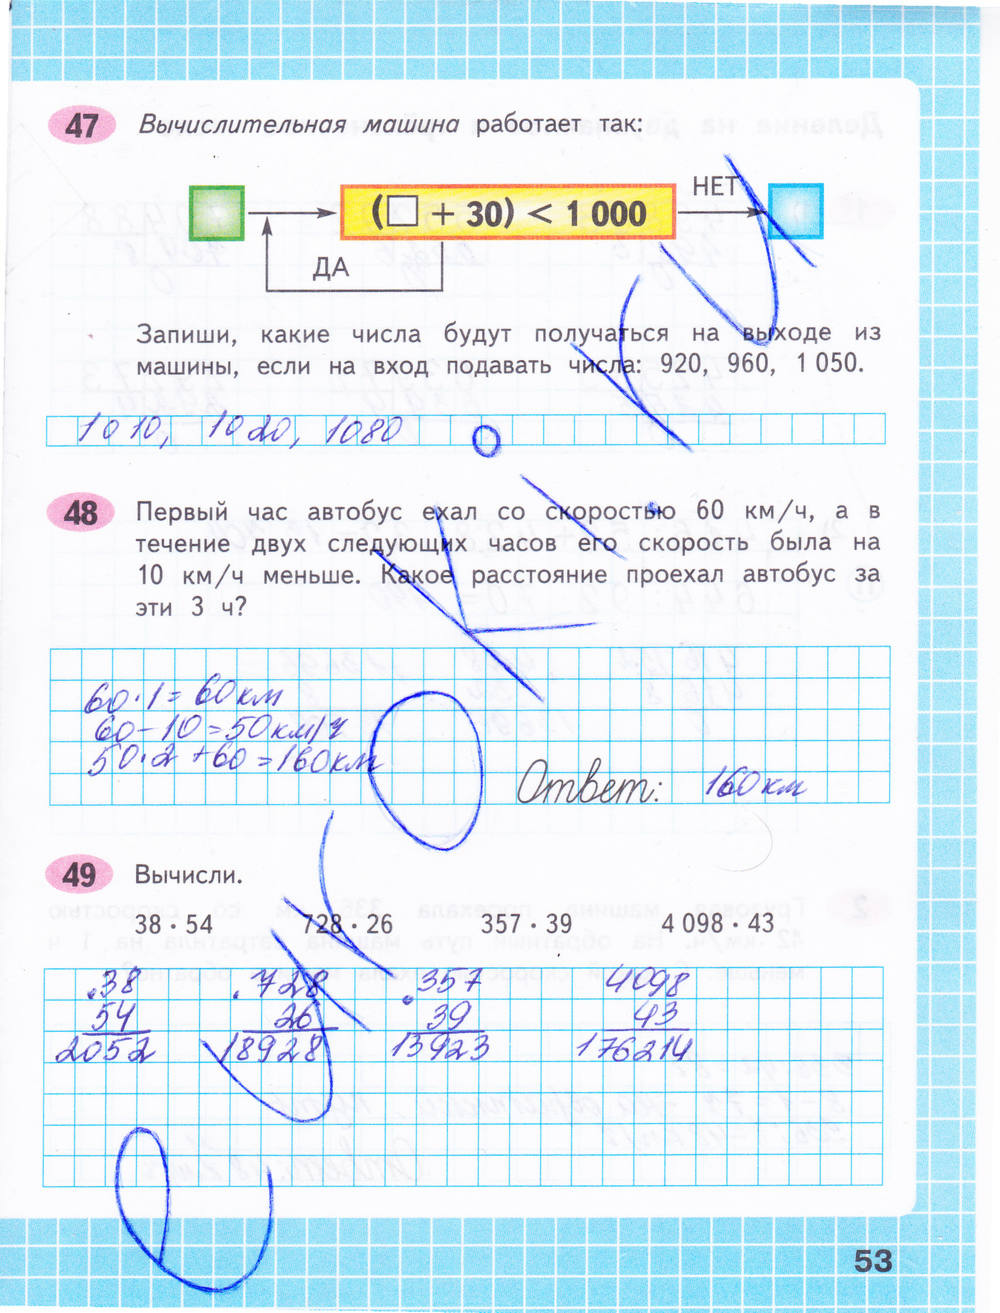 47 Вычислительная машина работает так:
(□ + 30) < 1 000
НЕТ
ДА
Запиши, какие числа будут получаться на выходе из
машины, если на вход подавать числа: 920, 960, 1 050.
1010, 1020, 1080
48 Первый час автобус ехал со скоростью 60 км/ч, а в
течение двух следующих часов его скорость была на
10 км/ч меньше. Какое расстояние проехал автобус за
эти 3 ч?
60·1= 60км
60-10=50км/ч
50·2+60=160км
Ответ: 160км
49 Вычисли.
38·54 728·26 357·39 4 098·43
38 728 357 4098
54 26 39 43
2052 18928 13923 176214
53